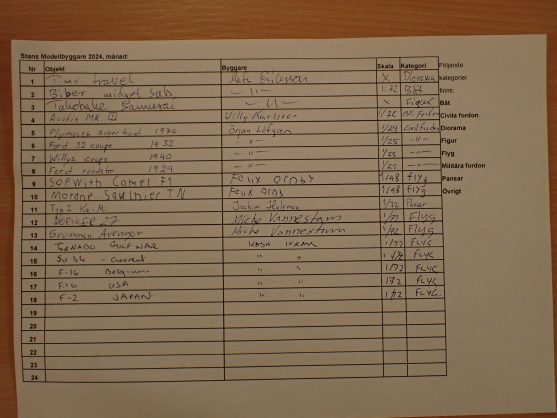 Stans Modellbyggare 2024, månad:
Nr Objekt Byggare Skala Kategori Följande
1 Time travel X Diorama kategorier
2 Biber midget Sub. — 11 — 1:72 Båt finns:
3 Takohake Samurai — 11 — X Figur Båt
4 Austin MK III Willy Karlsson 1/20 Mil. Fordon Civila fordon
5 Plymouth superbird 1970 Örjan Löfgren 1/24 Civil fordon Diorama
6 Ford 32 coupe 1932 — " — 1/25 — " — Figur
7 Willys coupe 1940 — " — 1/25 — " — Flyg
8 Ford roadster 1929 — " — 1/25 — " — Militära fordon
9 SOPWITH Camel F1 Felix ornby 1/48 flyg Pansar
10 Morane Saulnier TN Felix ornby 1/48 flyg Övrigt
11 Typ 2 Ka-Mi Joakim Hultman 1/72 Pansar
12 Micke Vannestam 1/72 Flyg
13 Grumman Avenger Micke Vannestam 1/72 Flyg
14 TORNADO GULF WAR KASH IKRAM 1/72 FLYG
15 SU 34 - Current " " 1/72 FLYG
16 F-16 Belgium " " 1/72 FLYG
17 F16 USA " " 1/72 FLYG
18 F-2 JAPAN " " 1/72 FLYG.
19
20
21
22
23
24